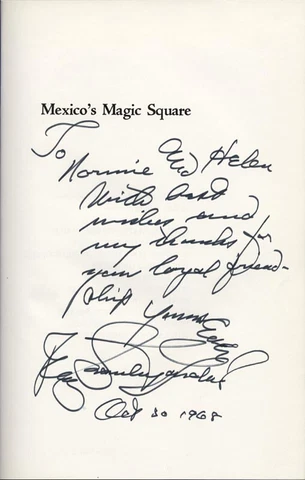 Mexico's Magic Square
To
Normie Helen
With best
wishes and
my thanks for
your loyal friend-
ship
Oct 30 1968